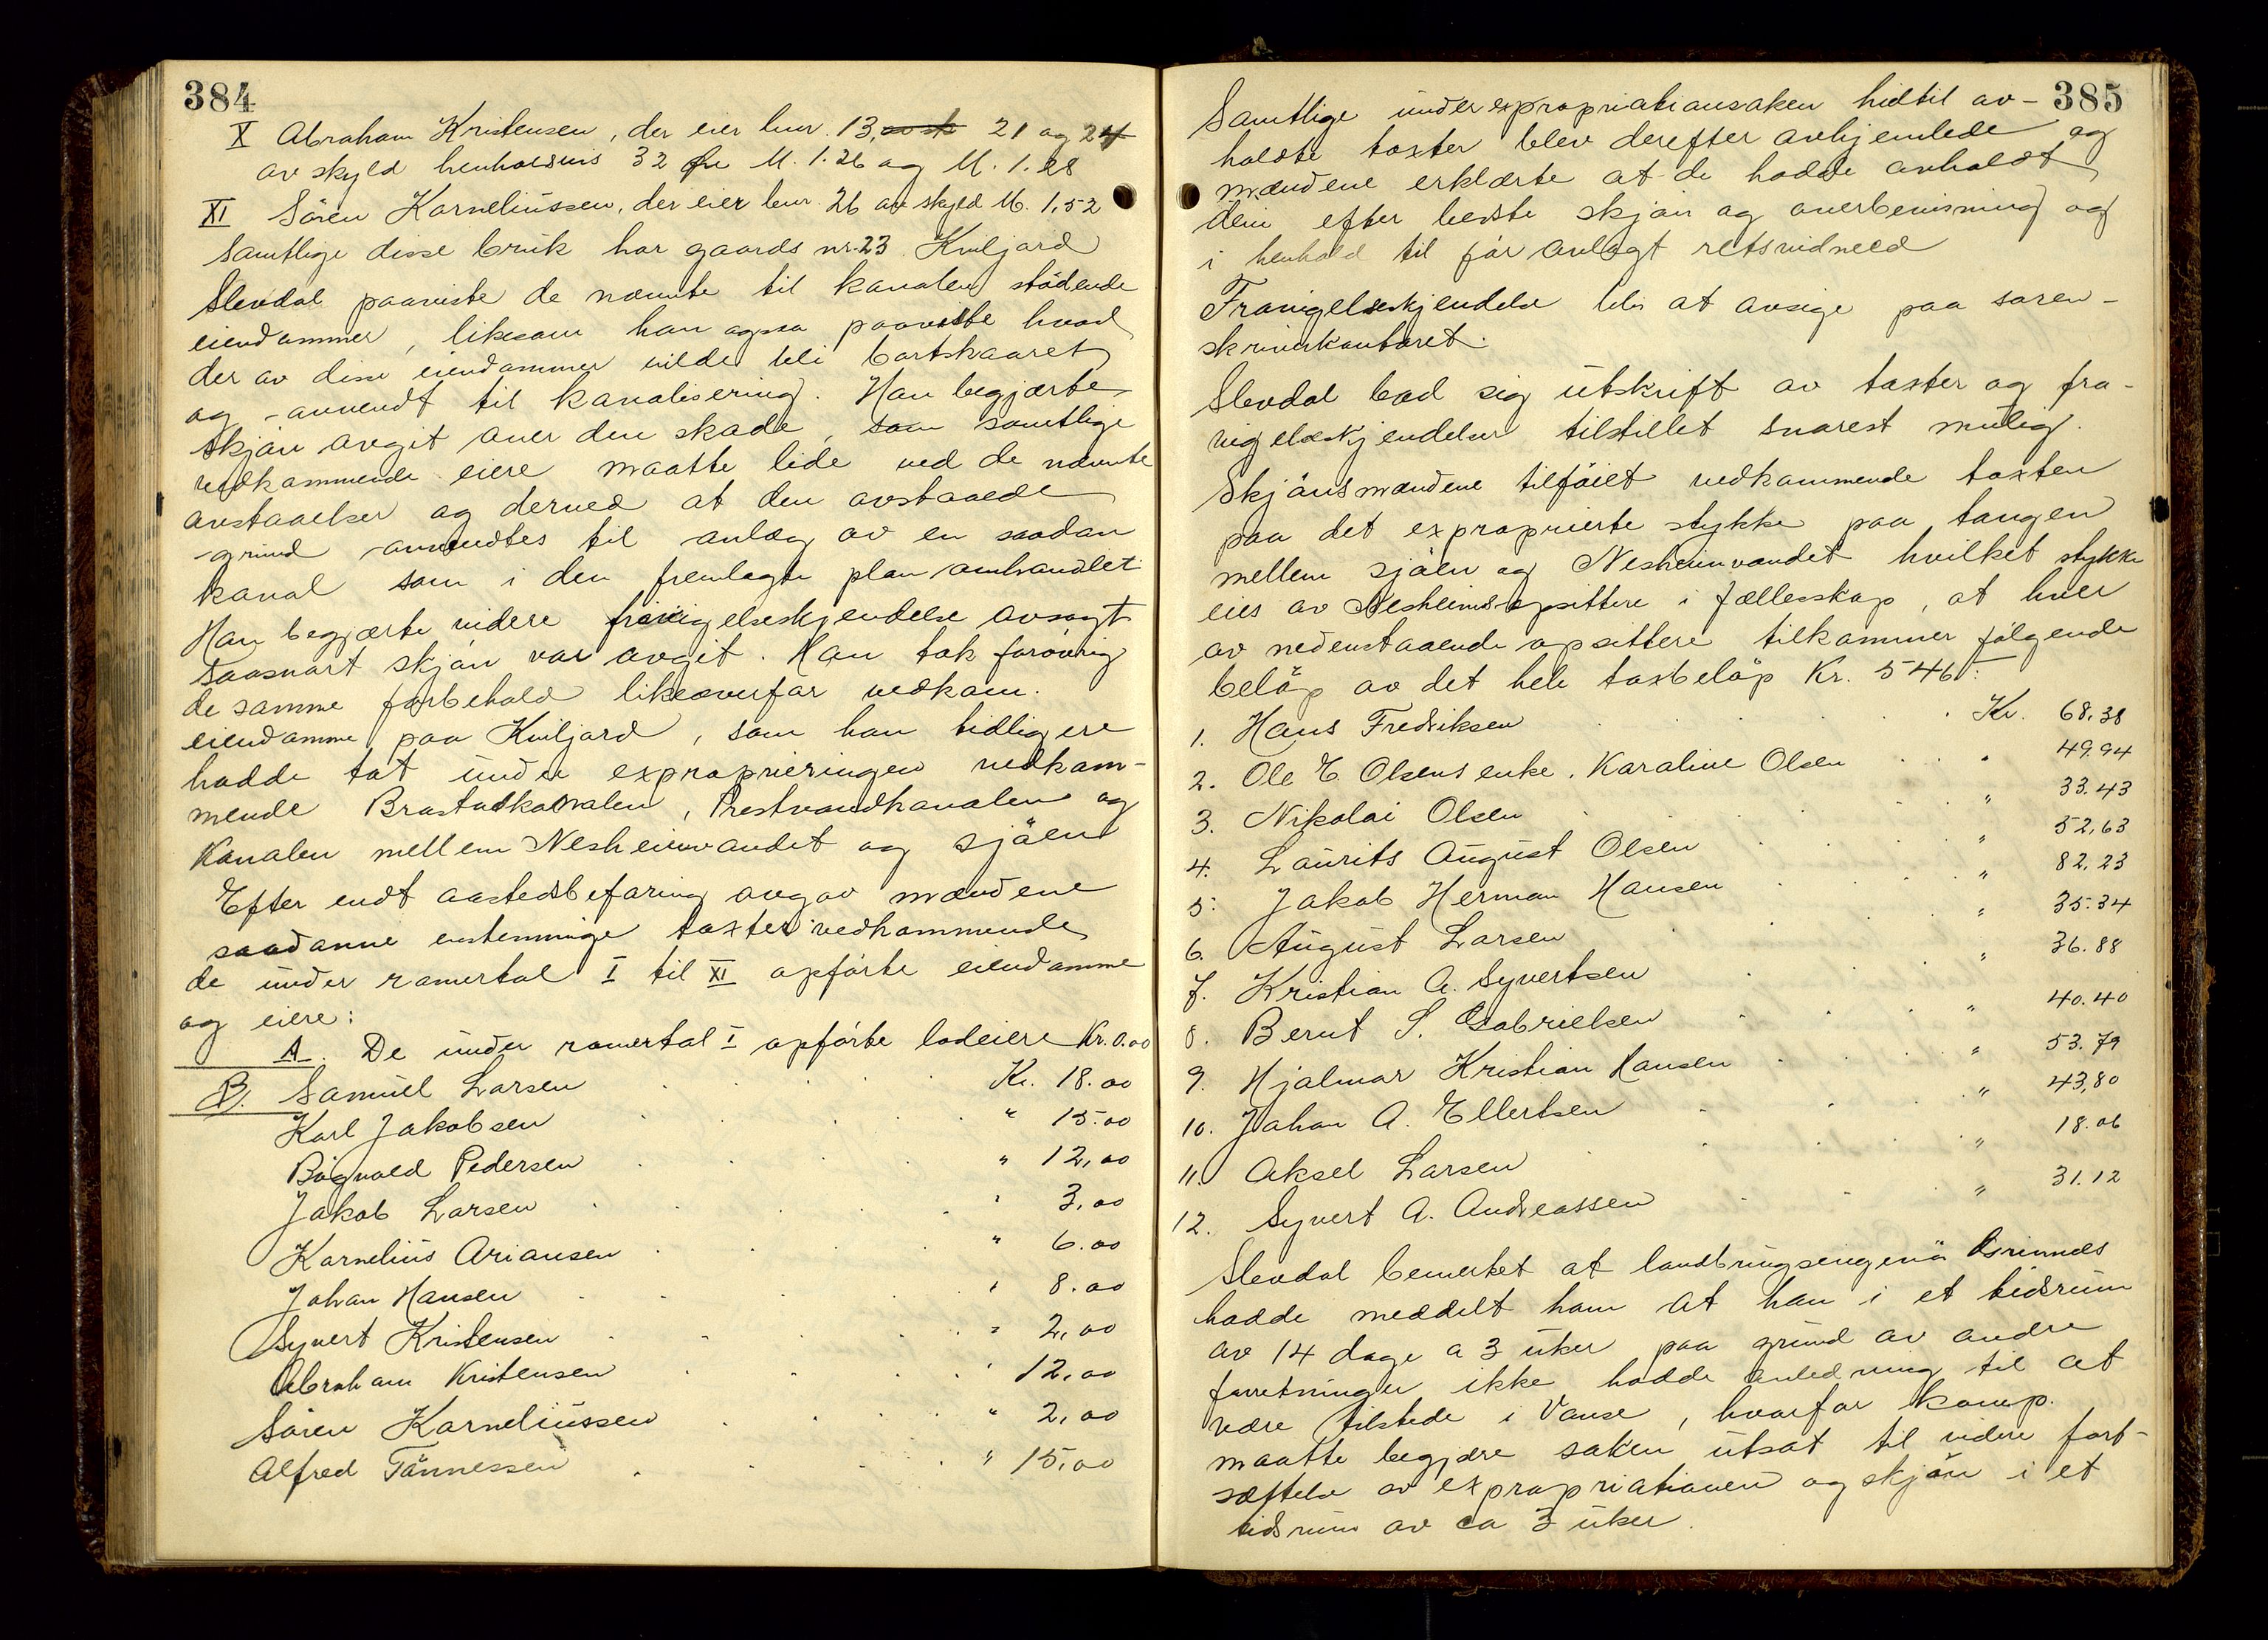 384
X Abraham Kristensen, der eier bnr. 13, 21 og 24
av skyld henholdsvis 32 Øre M. 1.26 og M. 1.28
XI Sören Korneliussen, der eier bnr. 26 av skyld M. 1,52
Samtlige disse bruk har gaards nr. 23 Kviljord
Slevdal paaviste de nævnte til kanalen stödende
eiendommer, likesom han ogsaa paaviste hvad
der av disse eiendommer vilde bli bortskaaret
og anvendt til kanalisering. Han begjærte
skjön avgit over den skade, som samtlige
vedkommende eiere maatte lide ved de nævnte
avstaaelser og derved at den avstaaede
grund anvendtes til anlæg av en saadan
kanal som i den fremlagte plan omhandlet
Han begjærte videre fravigelseskjendelse avsagt
saasnart skjön var avgit. Han tok forövrig
de samme forbehold likeoverfor vedkom.
eiendomme paa Kviljord, som han tidligere
hadde tat under exproprieringen vedkom-
mende Brastadkanalen, Prestvandkanalen og
Kanalen mellem Nesheimvandet og sjöen
Efter endt aastedsbefaring avgav mændene
saadanne enstemmige taxter vedkommende
de under romertal I til XI opförte eiendomme
og eiere:
A. De under romertal I opförte lodeiere Kr. 0.00
B. Samuel Larsen Kr. 18.00
Karl Jakobsen " 15.00
Bögvald Pedersen " 12,00
Jakob Larsen " 3,00
Kornelius Ariansen " 6.00
Johan Hansen " 8.00
Syvert Kristensen " 2,00
Abraham Kristensen " 12,00
Sören Korneliussen " 2,00
Alfred Tönnessen " 15,00
385
Samtlige under expropriationsaken hidtil av-
holdte taxter blev derefter avhjemlede og
mændene erklærte at de hadde avholdt
dem efter bedste skjön og overbevisning og
i henhold til før avlagt retsvidneed
Fravigelseskjendelse blev at avsige paa soren-
skriverkontoret.
Slevdal bad sig utskrift av taxter og fra-
vigelseskjendelser tilstillet snarest mulig.
Skjönsmændene tilföiet vedkommende taxten
paa det exproprierte stykke paa tangen
mellem sjöen og Nesheimvandet hvilket stykke
eies av Nesheimsopsittere i fællesskap, at hver
av nedenstaaende opsittere tilkommer fölgende
belöp av det hele taxbelöp Kr. 546:
1. Hans Fredriksen Kr. 68,38
2. Ole E. Olsens enke, Karoline Olsen " 49.94
3. Nikolai Olsen " 33.43
4. Laurits August Olsen " 52,63
5. Jakob Herman Hansen " 82.23
6. August Larsen " 35.34
7. Kristian A. Syvertsen " 36.88
8. Bernt S. Gabrielsen " 40.40
9. Hjalmar Kristian Hansen " 53.79
10. Johan A. Ellertsen " 43,80
11. Aksel Larsen " 18.06
12. Syvert A. Andreassen " 31.12
Slevdal bemerket at landbruksingeniör
hadde meddelt ham at han i et tidsrum
av 14 dage a 3 uker paa grund av andre
forretninger ikke hadde anledning til at
være tilstede i Vanse, hvorfor komp.
maatte begjære saken utsat til videre fort-
sættelse av expropriationen og skjön i et
tidsrum av ca 3 uker.